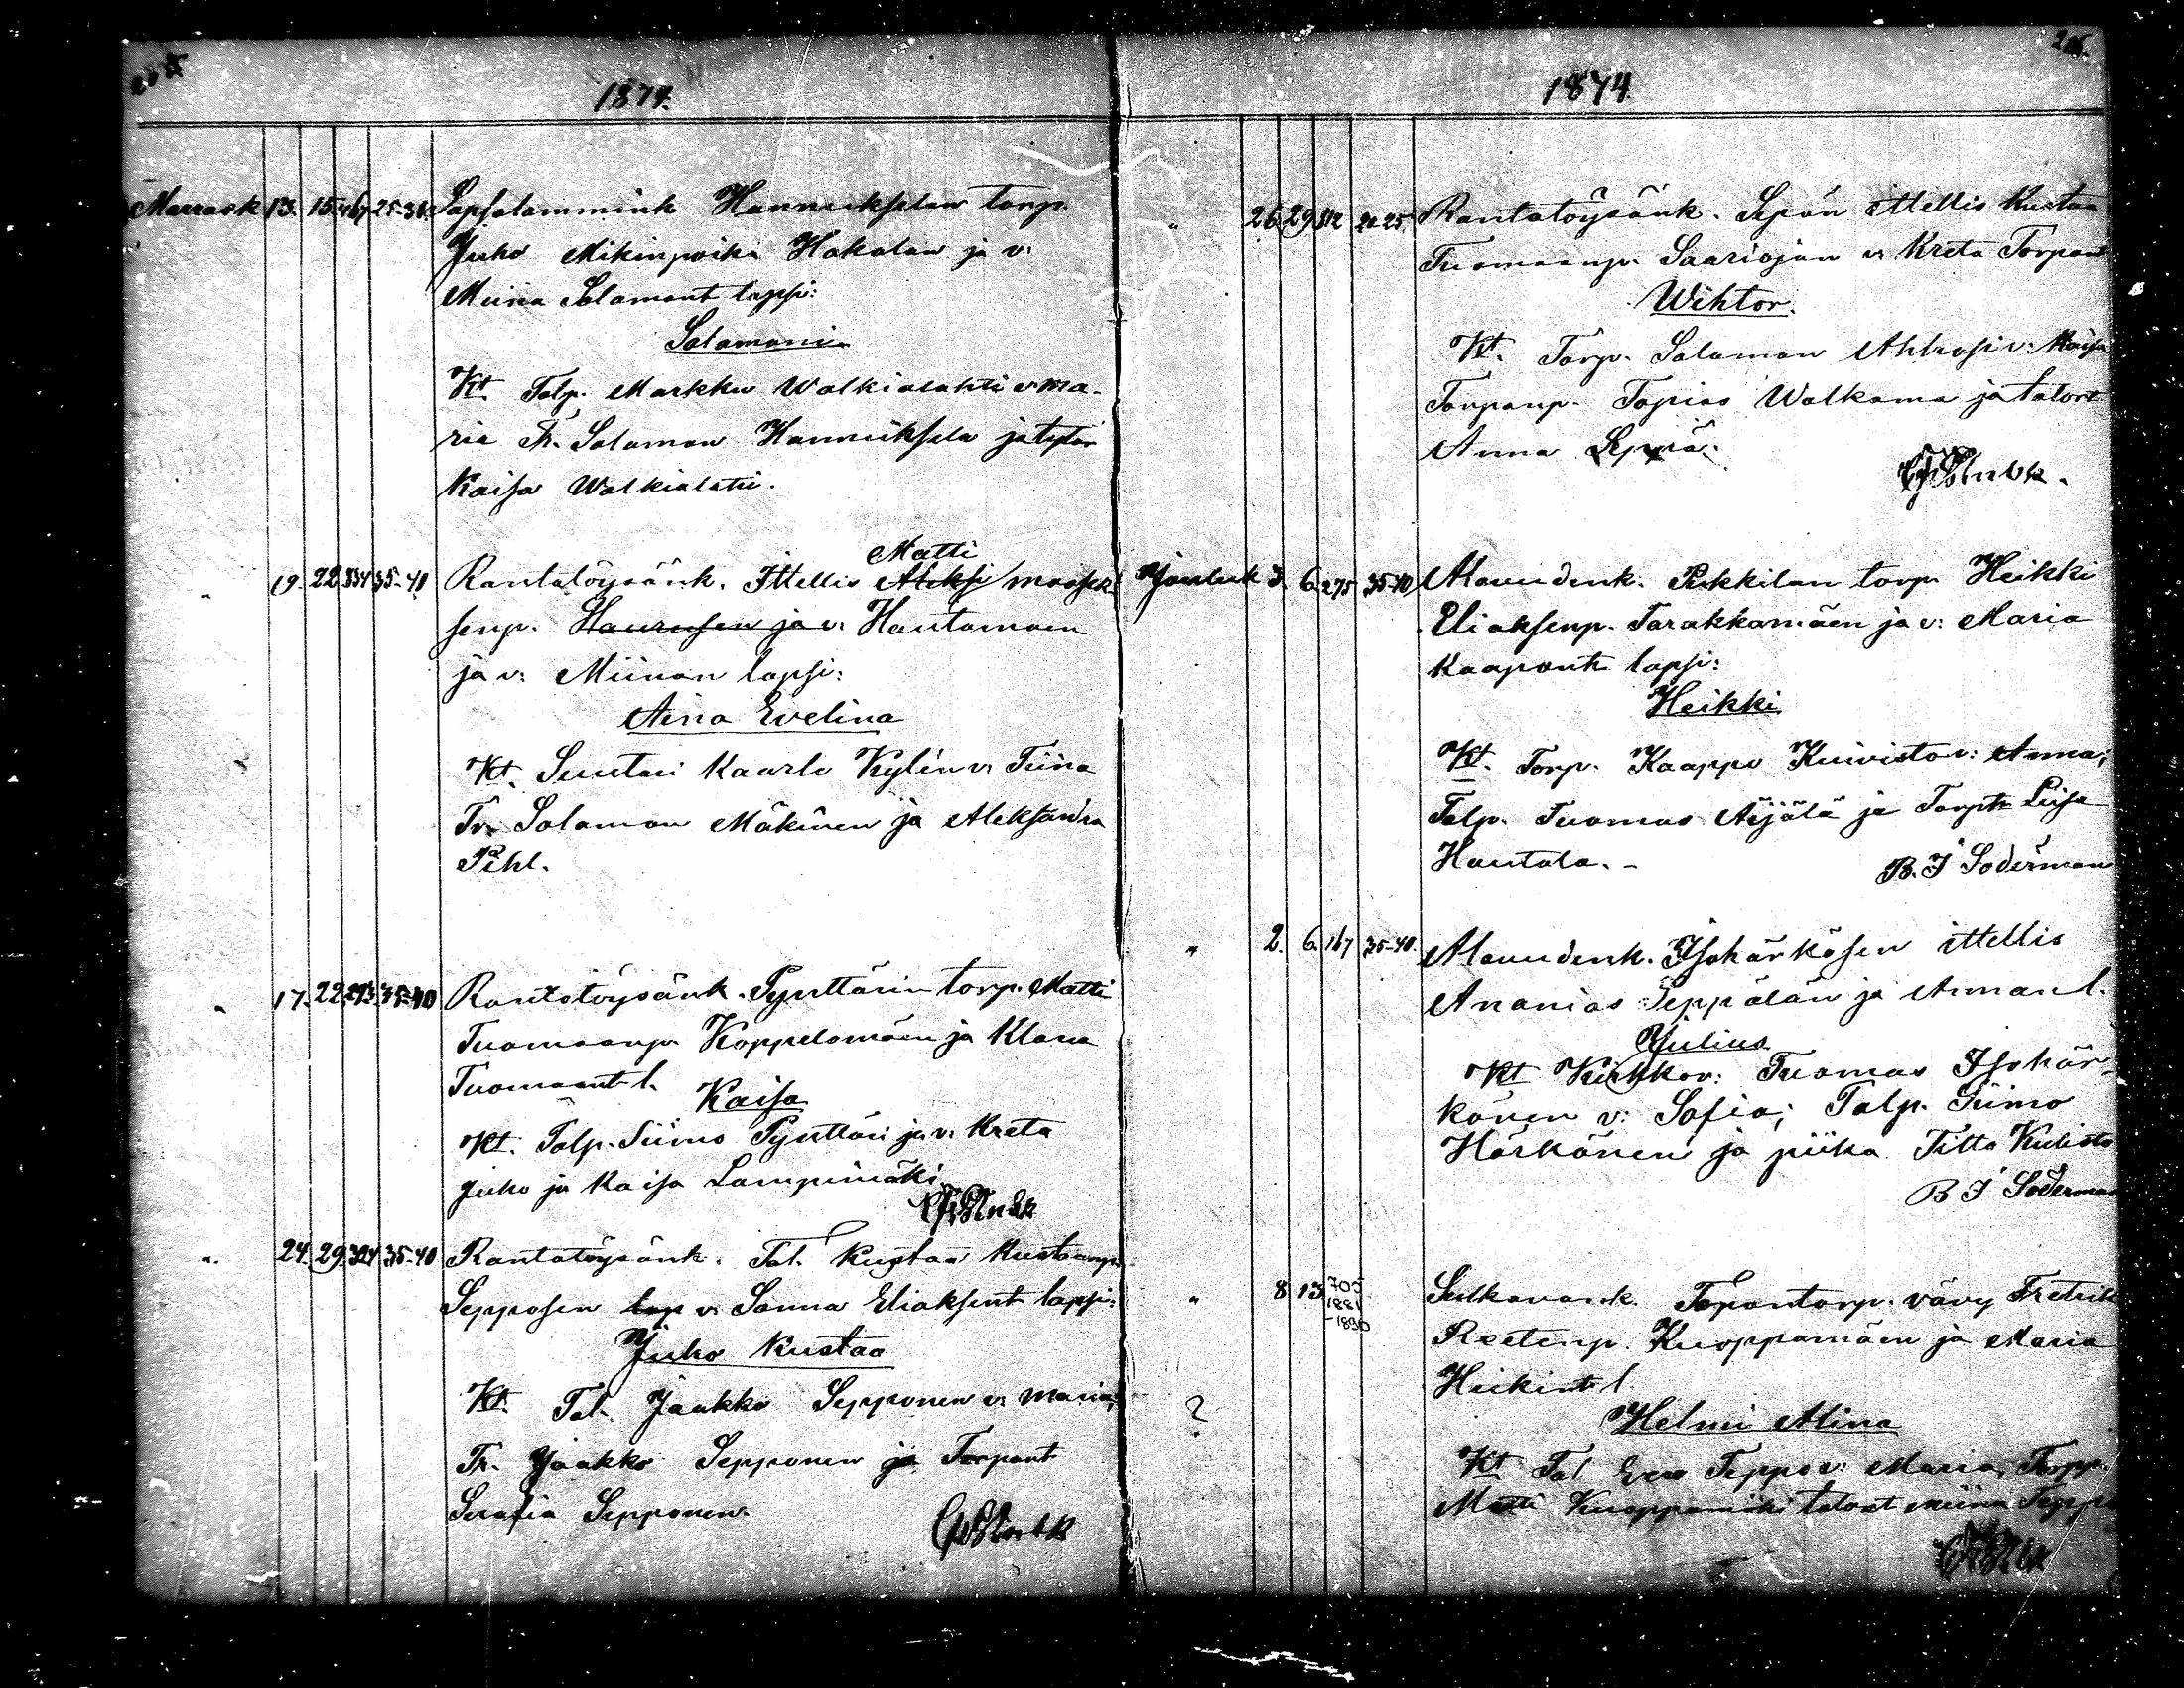 1874.
Marrask 13. 15. 467 25-30. Hannukselan torp.
Juho Mikinpoika Hakalan ja v:
Miina Salamont lapsi:
Salamoni
Kt. Talp. Markku Walkialahti v: Ma-
ria Tr. Salamon Hannuksela ja tytär
Kaisa Walkialahti.
" 19. 22. 334 35-40 Rantatöysänk. Ittellis Aleksi Matti
senp. Haurusen ja v: Hautamaen
ja v: Miinan lapsi:
Aina Evelina
Kt. Suutari Kaarlo Kylin v: Tiina
Tr. Salamon Mäkinen ja Aleksandra
Pihl.
" 17. 22. 293 35-40 Rantatöysänk. Pynttärin torp. Matti
Tuomaanp. Koppelomäen ja Klara
Tuomaant l.
Kaisa
Kt. Talp. Siimo Pynttäri ja v: Kreta
Juho ja Kaisa Lampimäki
" 24. 29. 324 35-40 Rantatöysänk. Tal. Kustaa Kustaanp.
Sepposen lap v: Sanna Eliaksent lapsi:
Juho Kustaa
Kt. Tal. Jaakko Sepponen v: Maria,
Tr. Jaakko Sepponen ja Torpant
Serafia Sepponen.
1874.
" 26. 29. 312 20-25. Rantatöysänk. Sepän ittellis Kustaa
Tuomaanp. Saariojan v: Kreta Torpant
Wihtor.
Kt. Torp. Salamon Ahlrosi v: Maija
Torpanp. Topias Walkama ja talont
Anna Seppä.
Jouluk 3. 6. 275 35-40 Alavudenk. Pukkilan torp. Heikki
Eliaksenp. Tarakkamäen ja v: Maria
Kaapont lapsi:
Heikki
Kt. Torp. Kaappo Kuivisto v: Anna;
Talp. Tuomas Äijälä ja Torpt. Liisa
Hautala. -
B. J Söderman
" 2. 6. 167 35-40. Alavudenk. Isohärkösen ittellis
Ananias Seppälän ja Annan l.
Julius
Kt Kirkkov: Tuomas Isohär-
könen v: Sofia; Talp. Siimo
Härkönen ja piika Titta Kulisto
B J Söderman
" 8 13 705
1881
-1890
Sulkavank. torp. vävy Fretrik
Reetenp. Kuoppamäen ja Maria
Heikint l.
?
Helmi Alina
Kt Tal Teppo v: Maria, Torpp.
Matti Kuoppamäki talont Miina Teppo